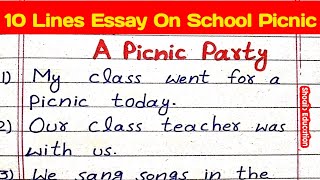 10 Lines Essay On School Picnic
A Picnic Party
1) My class went for a
Picnic today.
2) Our class teacher was
with us.
3) We sang songs in the
Shoaib Education